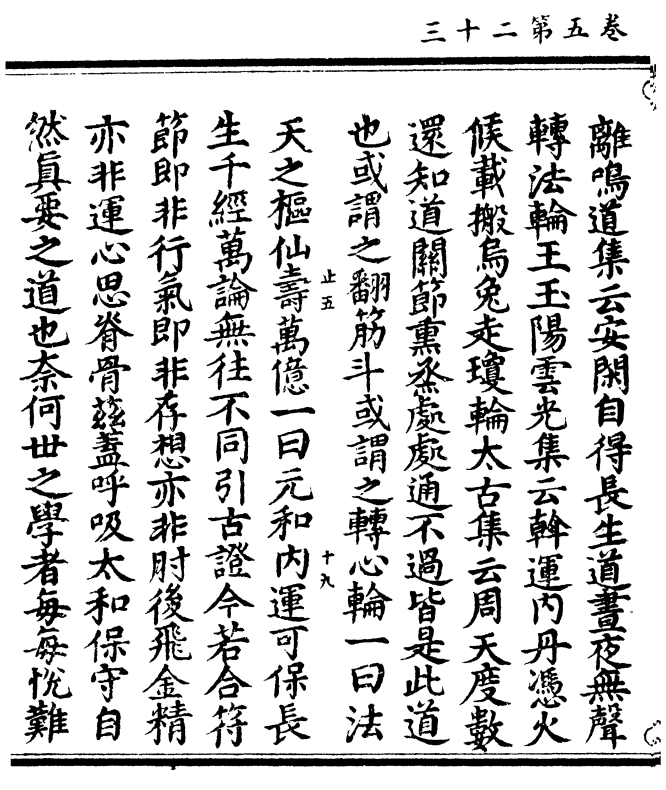 卷五第二十三
離鳴道集云安閑自得長生道晝夜無聲
轉法輪王玉陽雲光集云斡運內丹憑火
候載搬烏兔走瓊輪太古集云周天度數
還知道關節熏烝處處通不過皆是此道
也或謂之翻筋斗或謂之轉心輪一曰法
止五
十九
天之樞仙壽萬億一曰元和內運可保長
生千經萬論無往不同引古證今若合符
節即非行氣即非存想亦非肘後飛金精
亦非運心思脊骨蓋呼吸太和保守自
然真要之道也奈何世之學者每每悅難